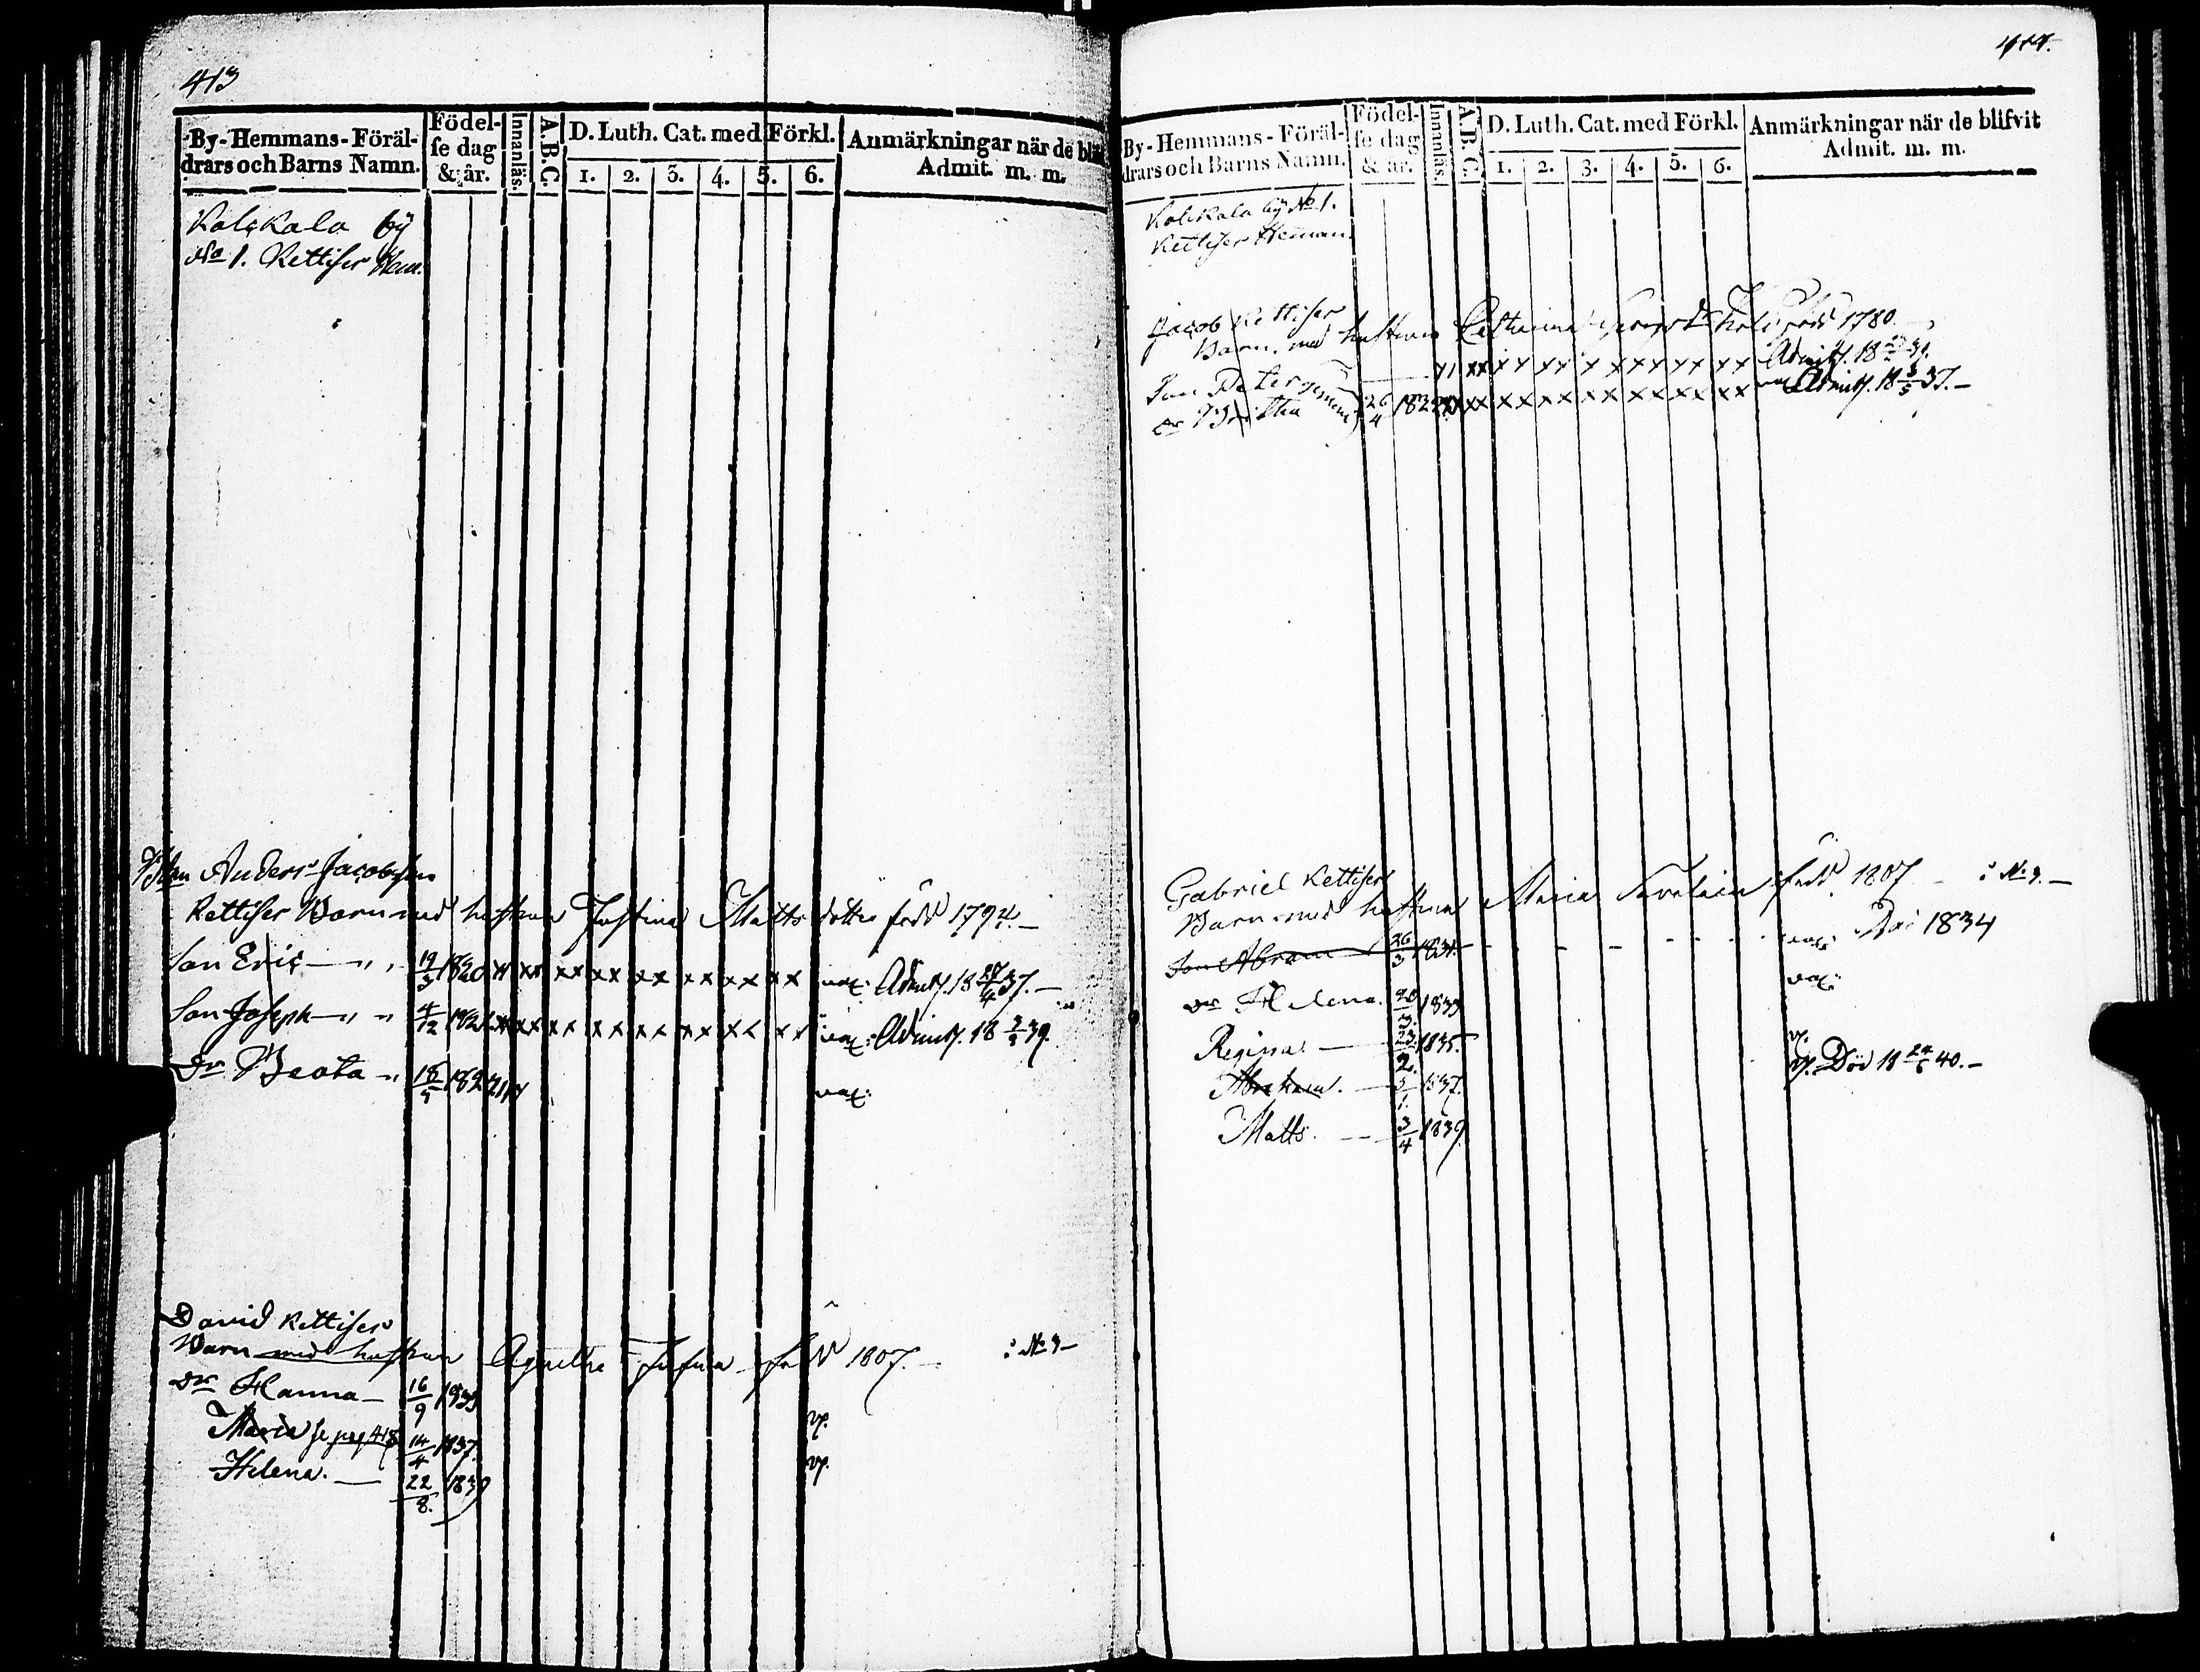 413
By-Hemmans-Föräl-
drars och Barns Namn.
Födel-
se dag
& år.
Innanläs.
A.B.C.
D. Luth. Cat. med Förkl.
1. 2. 3. 4. 5. 6.
Anmärkningar när de blif
Admit. m. m.
Kolckala by
No 1. Kettiser Hem.
Anders Jacobsson
Kettiser Barn med hustrun Justina Matts dotter född 1794.
Son Eric 19/3 1820 xx xx xx xx xx xx xx vax: Admitt. 18 27/4 37.
Son Joseph 4/12 182 xx xx xx xx xx xx xx vax: Admitt. 18 39.
Dr Beata 18 182 vax:
David Kettiser
Barn med hustrun Agnetha född 1807. i No 9
Dr Hanna 16/9 1835 vp.
Maria se pag 418 14/4 1837. vp.
Helena. 22/8. 1839
By-Hemmans-Föräl-
drars och Barns Namn.
Födel-
se dag
& år.
Innanläs.
A.B.C.
D. Luth. Cat. med Förkl.
1. 2. 3. 4. 5. 6.
Anmärkningar när de blifvit
Admit. m. m.
Kolckala by No 1.
Kettiser Hemman.
Jacob Kettiser
Barn med hustrun Catharina född 1780
Son Peter xx xx xx x xx xx xx Admitt. 18
Dr Britha 26/4 182 xx xx xx xx xx xx xx Admitt. 18 37.
Gabriel Kettiser
Barn med hustrun Maria född 1807 i No 9.
Son Abram 26/3 1831. vax: Död 1834
Dr Helena. 20/3. 1833 vax:
Regina. 23/2. 1835. vp.
Abraham. 5/1. 1837. vp. Död 18 24/6 40.
Matts. 3/4 1839